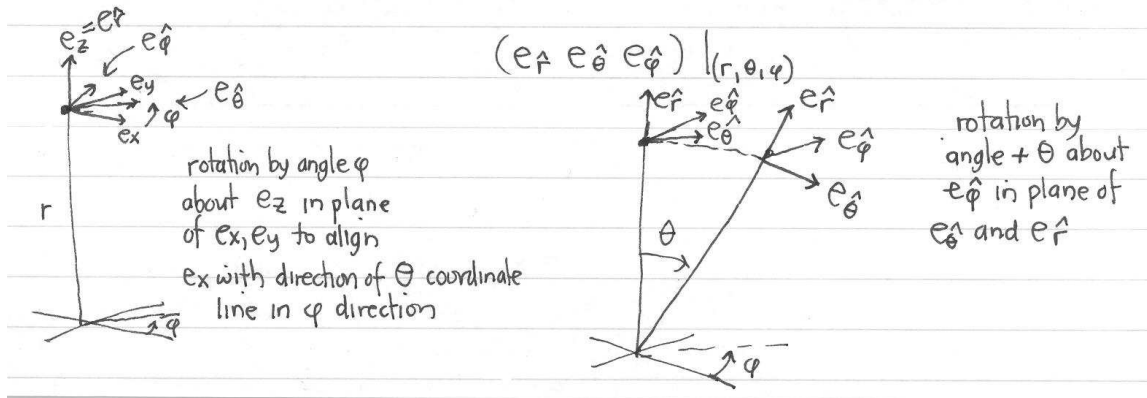 e_z = e_r̂
e_φ̂
e_y
e_θ̂
φ
e_x
r
rotation by angle φ
about e_z in plane
of e_x, e_y to align
e_x with direction of θ coordinate
line in φ direction
φ
(e_r̂ e_θ̂ e_φ̂) |(r,θ,φ)
e_r̂
e_φ̂
e_θ̂
e_r̂
e_φ̂
e_θ̂
θ
φ
rotation by
angle + θ about
e_φ̂ in plane of
e_θ̂ and e_r̂